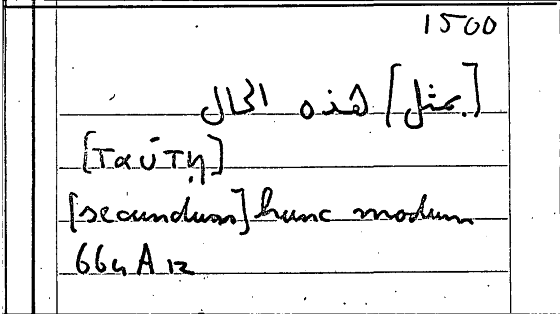 1500
[بمثل] هذه الحال
[ταύτη]
[secundum] hunc modum
664 A 12